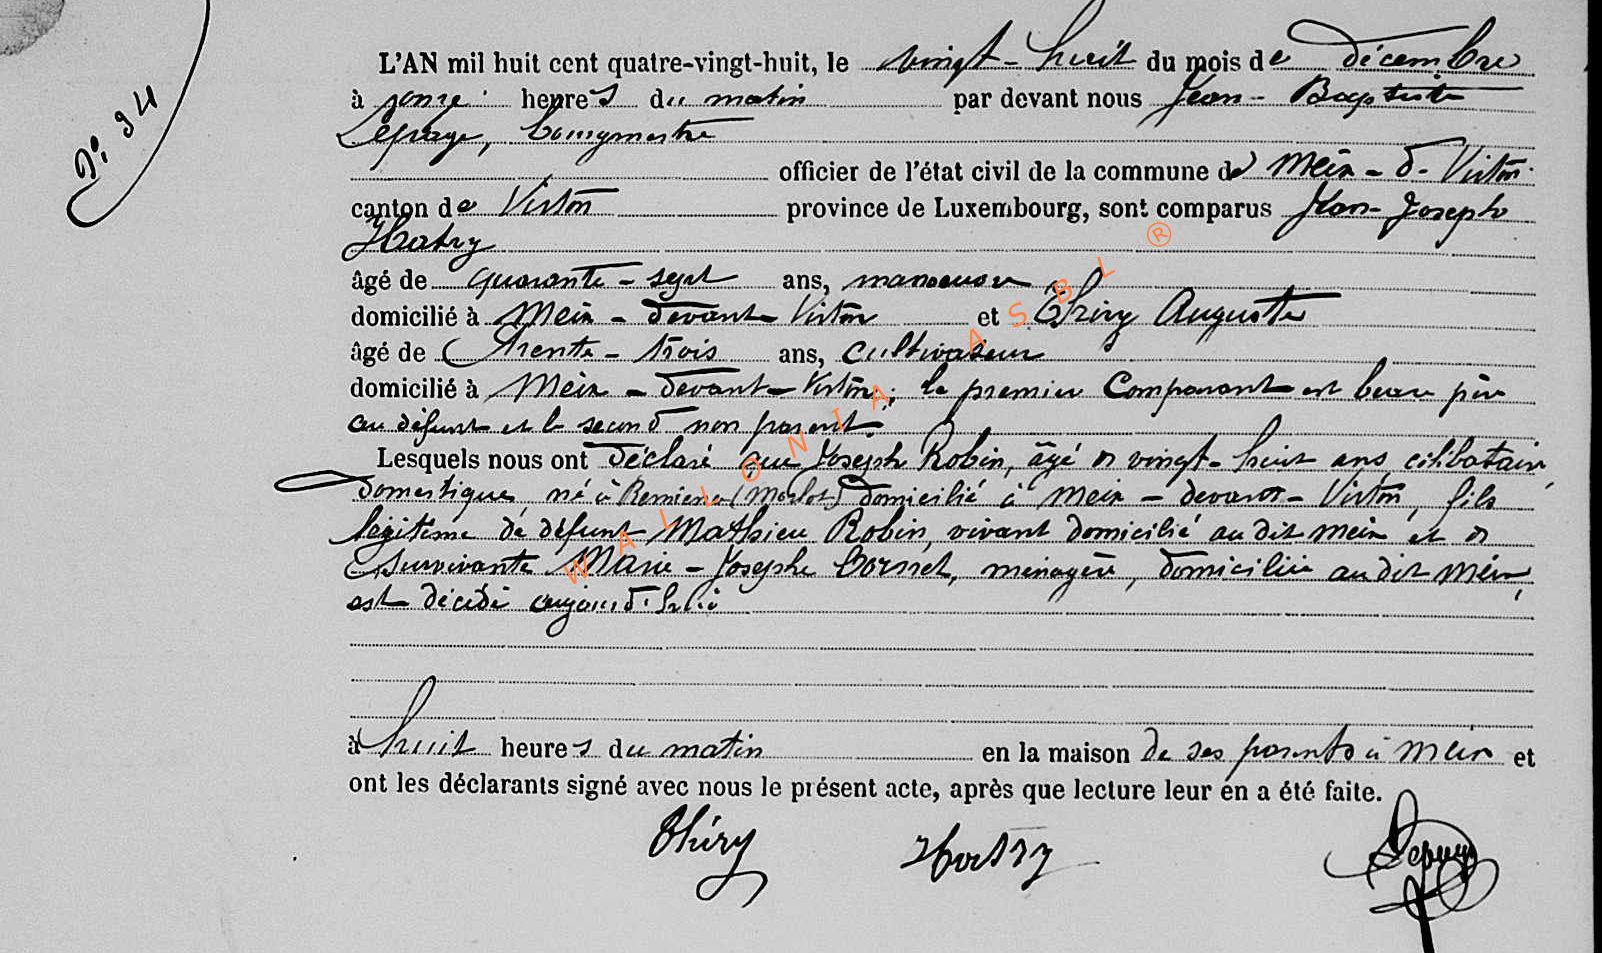 N° 34
L'AN mil huit cent quatre-vingt-huit, le vingt-huit du mois de décembre
à onze heures du matin par devant nous Jean-Baptiste
Lepage, bourgmestre
officier de l'état civil de la commune de Meix-d-Virton
canton de Virton province de Luxembourg, sont comparus Jean-Joseph
Hatry
âgé de quarante-sept ans, manoeuvre
domicilié à Meix-devant-Virton et Thiry Auguste
âgé de trente-trois ans, cultivateur
domicilié à Meix-devant-Virton; le premier comparant est beau père
au défunt et le second non parent.
Lesquels nous ont déclaré que Joseph Robin, âgé de vingt-huit ans, célibataire,
domestique, né à (Merlot) domicilié à Meix-devant-Virton, fils
légitime de défunt Mathieu Robin, vivant domicilié au dit Meix et de
survivante Marie-Josephe Cornet, ménagère, domiciliée au dit Meix,
est décédé aujourd'hui
à huit heures du matin en la maison de ses parents à Meix et
ont les déclarants signé avec nous le présent acte, après que lecture leur en a été faite.
Thiry Hatry Lepage
WALLONIA ASBL ®